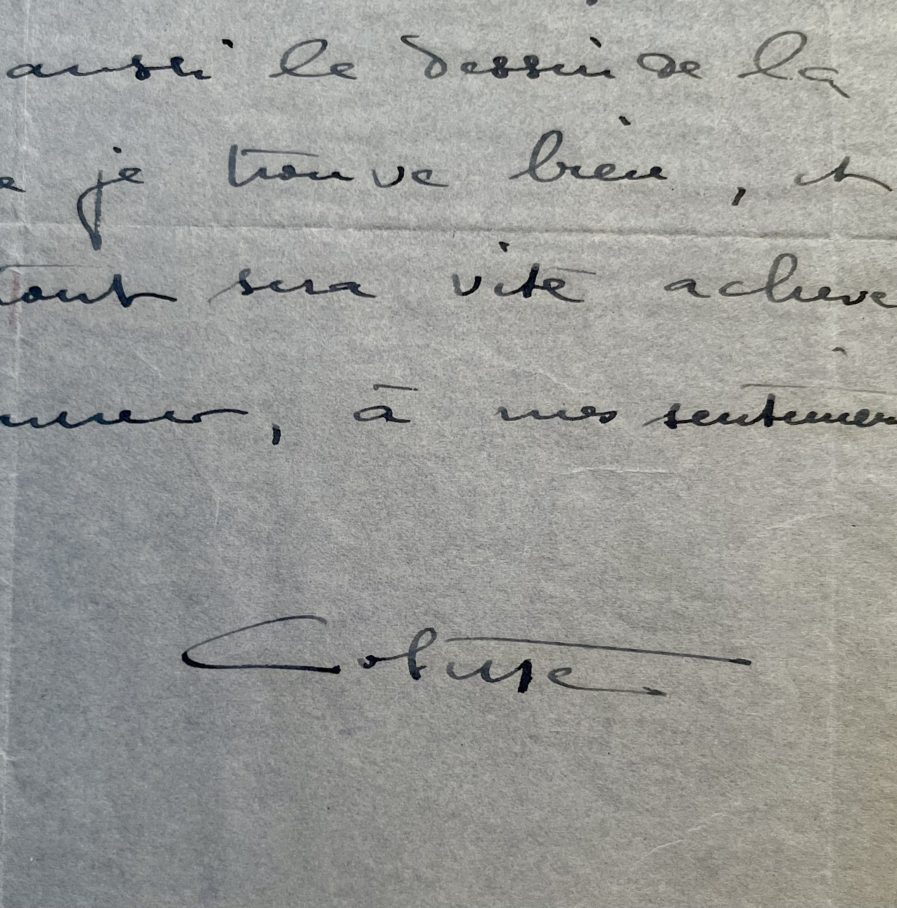 aussi le dessin de la
je trouve bien, et
tout sera vite acheve
, à mes sentimen